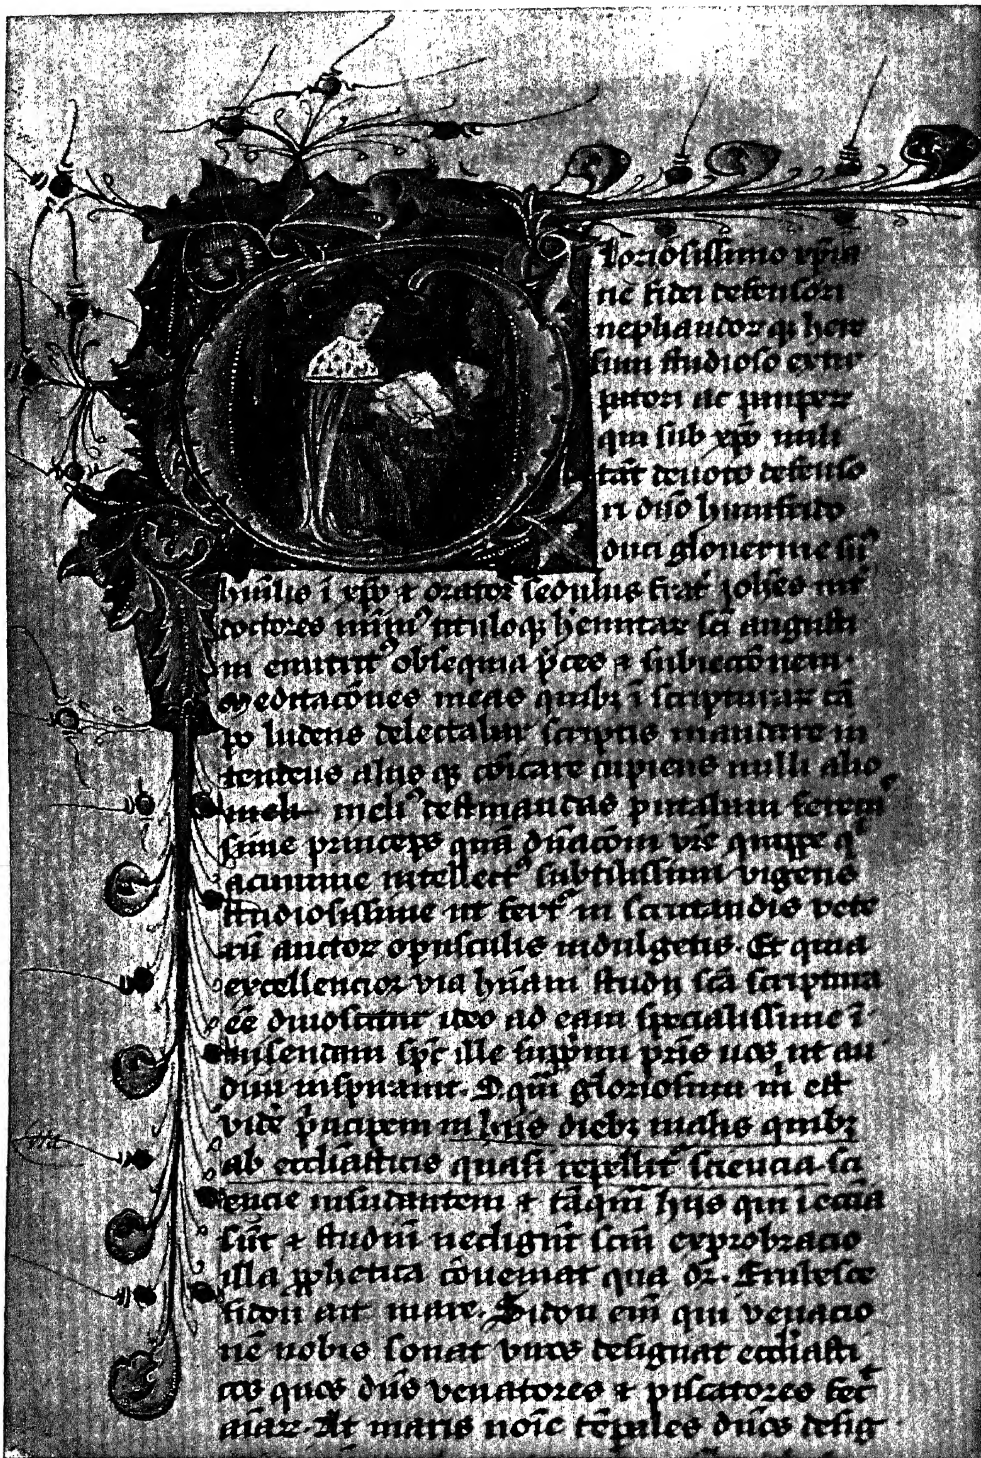 Gloriosissimo xp̄ia
ne fidei defensori
nephandorꝝ qꝫ here
sum studioso extir
patori ac pauper
qui sub xp̄o mili
tāt deuoto defenso
ri dn̄o humfrido
duci glouernie
humilis ī xp̄o ⁊ orator sedulus frat̄ Joh̄es int̄
doctores titulo qꝫ h̄emitaꝝ sc̄i augusti
ni obsequia p̄ces ⁊ subiecc̄onem.
Meditac̄ones meas quibꝫ ī scripturaꝝ cā
po ludens delectabar scriptis mandare in
tendens aliis qꝫ cōicare cupiens nulli alio
meli meliꝰ destinandas putabam
sime princeps quā dn̄acōm vr̄e quippe qͥ
acumine intellectꝰ subtilissimi vigens
studiosissime ut fert᷑ in scrutandis vete
rū auctoꝝ opusculis indulgetis. Et quia
excellencior via hūani studij sc̄a scriptura
ēē dinoscitur ideo ad eam specialissime ī
uisendam sp̄c ille supp̄mi pr̄is uos ut au
diui inspirauit. gloriosum m̄ est
vidē p̄ncipem in hiis diebꝫ malis quibꝫ
ab eccl̄iasticis quasi repellit᷑ sciencia sci
encie insudantem ⁊ tāqm̄ hijs qui ī ecc̄ia
sūt ⁊ studiū necligūt sciū exprobracio
illa ꝓphetica cōueniat qua dr̄. Erubesce
sidon ait mare. Sidon eī qui venacio
nē nobis sonat viros designat eccl̄iasti
cos quos dn̄s venatores ⁊ piscatores fec̄
aīaꝝ. At maris noīe tēporales dn̄os desig